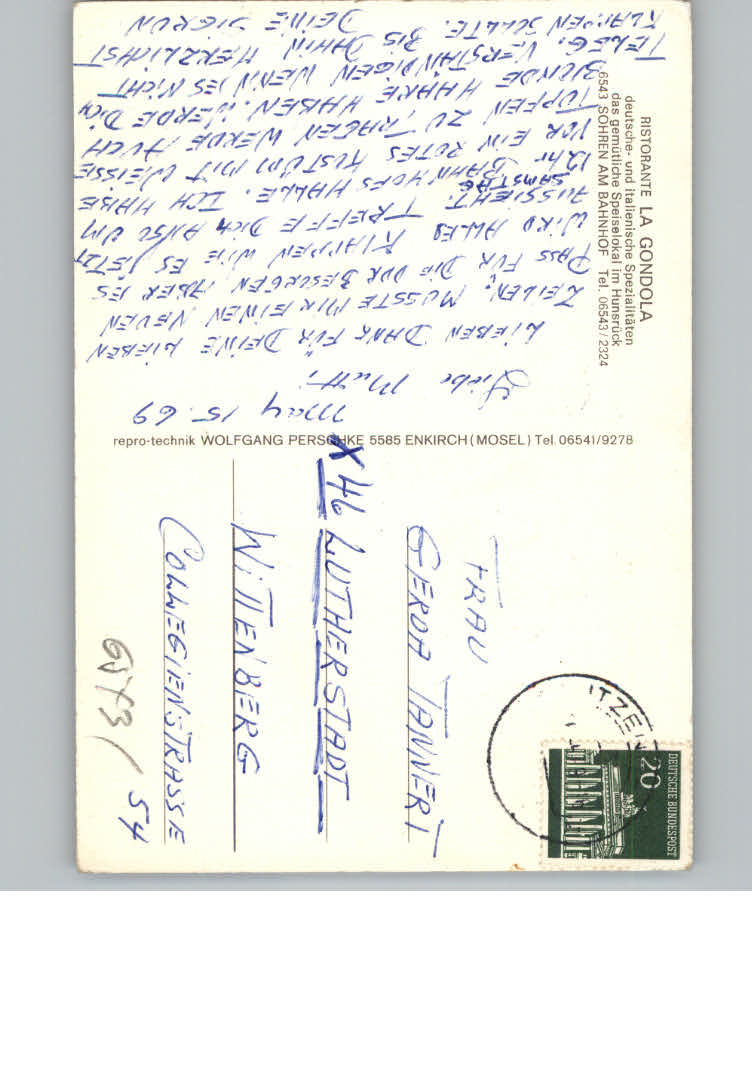 RISTORANTE LA GONDOLA
deutsche- und italienische Spezialitäten
das gemütliche Speiselokal im Hunsrück
6543 SOHREN AM BAHNHOF Tel. 06543/2324
May 15. 69
Liebe Mutti
LIEBEN DANK FÜR DEINE LIEBEN
ZEILEN. MUSSTE MIR EINEN NEUEN
PASS FÜR DIE DDR BESORGEN ABER ES
WIRD ALLES KLAPPEN WIE ES JETZT
AUSSIEHT. TREFFE DICH ALSO UM
SAMSTAG
12 hr BAHNHOFS HALLE. ICH HABE
VOR EIN ROTES KOSTÜM MIT WEISSE
TUPFEN ZU TRAGEN WERDE AUCH
BLONDE HAARE HABEN. WERDE DICH
TELEG. VERSTÄNDIGEN WENN ES NICHT
KLAPPEN SOLLTE. BIS DAHIN HERZLICHST
DEINE SIGRUN
repro-technik WOLFGANG PERSCHKE 5585 ENKIRCH (MOSEL) Tel. 06541/9278
DEUTSCHE BUNDESPOST
20
FRAU
GERDA TANNERT
X 46 LUTHERSTADT
WITTENBERG
COLLEGIENSTRASSE
54